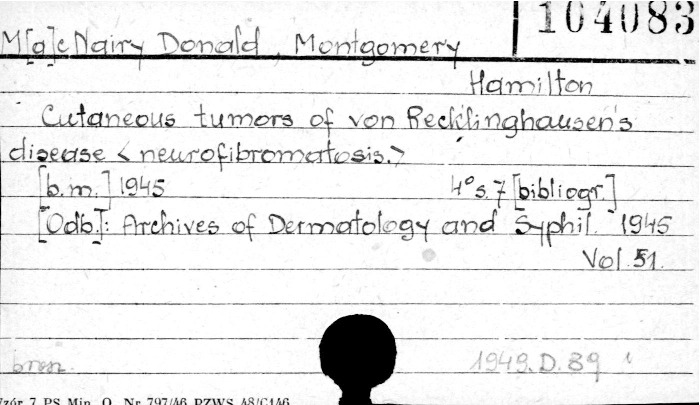 104083
M[a]cNairy Donald, Montgomery
Hamilton
Cutaneous tumors of von Recklinghausen's
disease <neurofibromatosis.>
[b.m.] 1945 4° s. 7 [bibliogr.]
[Odb.]: Archives of Dermatology and Syphil. 1945
Vol. 51.
1949. D. 89
Wzór 7 PS Min. O. Nr 797/46 PZWS 48/C146